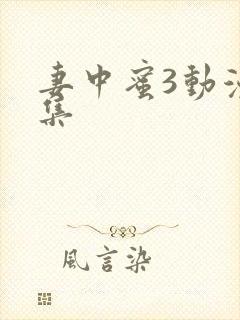 妻中蜜3動
集
風言染